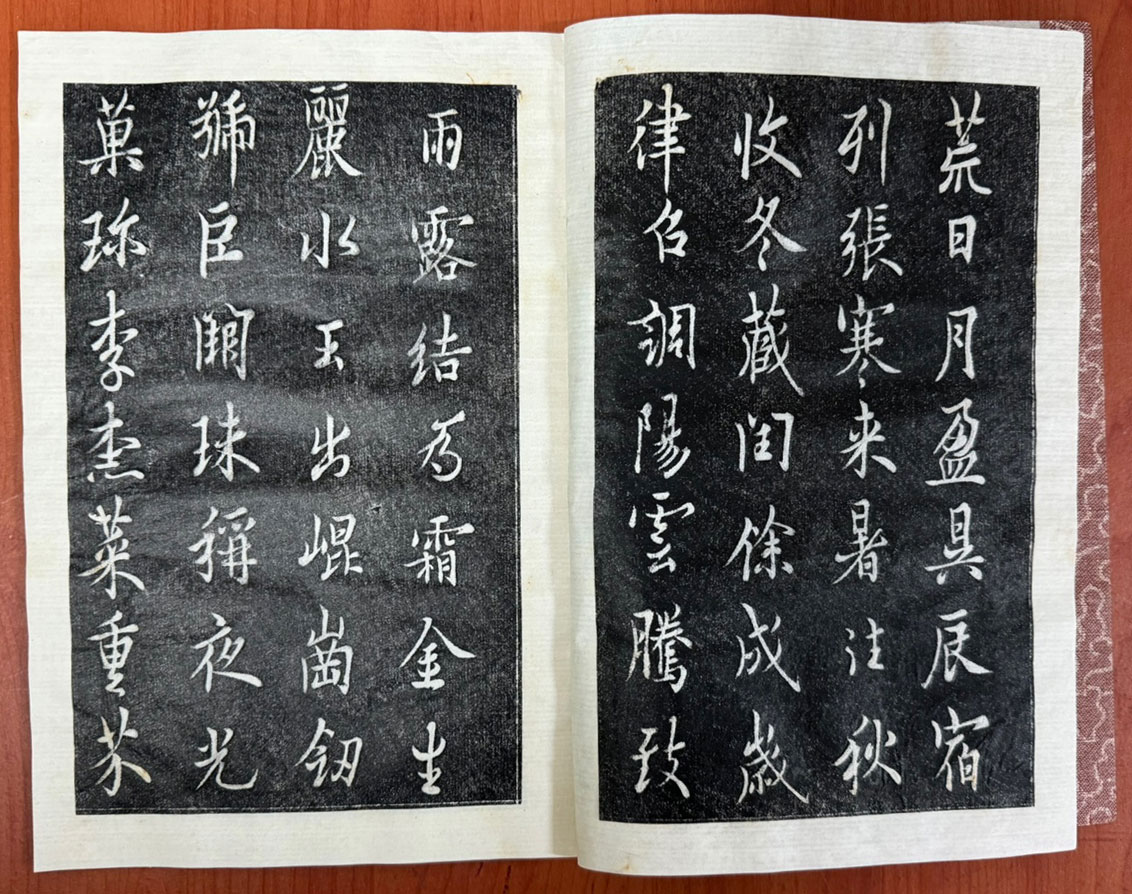 荒日月盈昃辰宿
列張寒来暑往秋
收冬蔵閏餘成歲
律召調陽雲騰致
雨露結為霜金生
麗水玉出崐崗釰
號臣闕珠稱夜光
菓珎李柰菜重芥